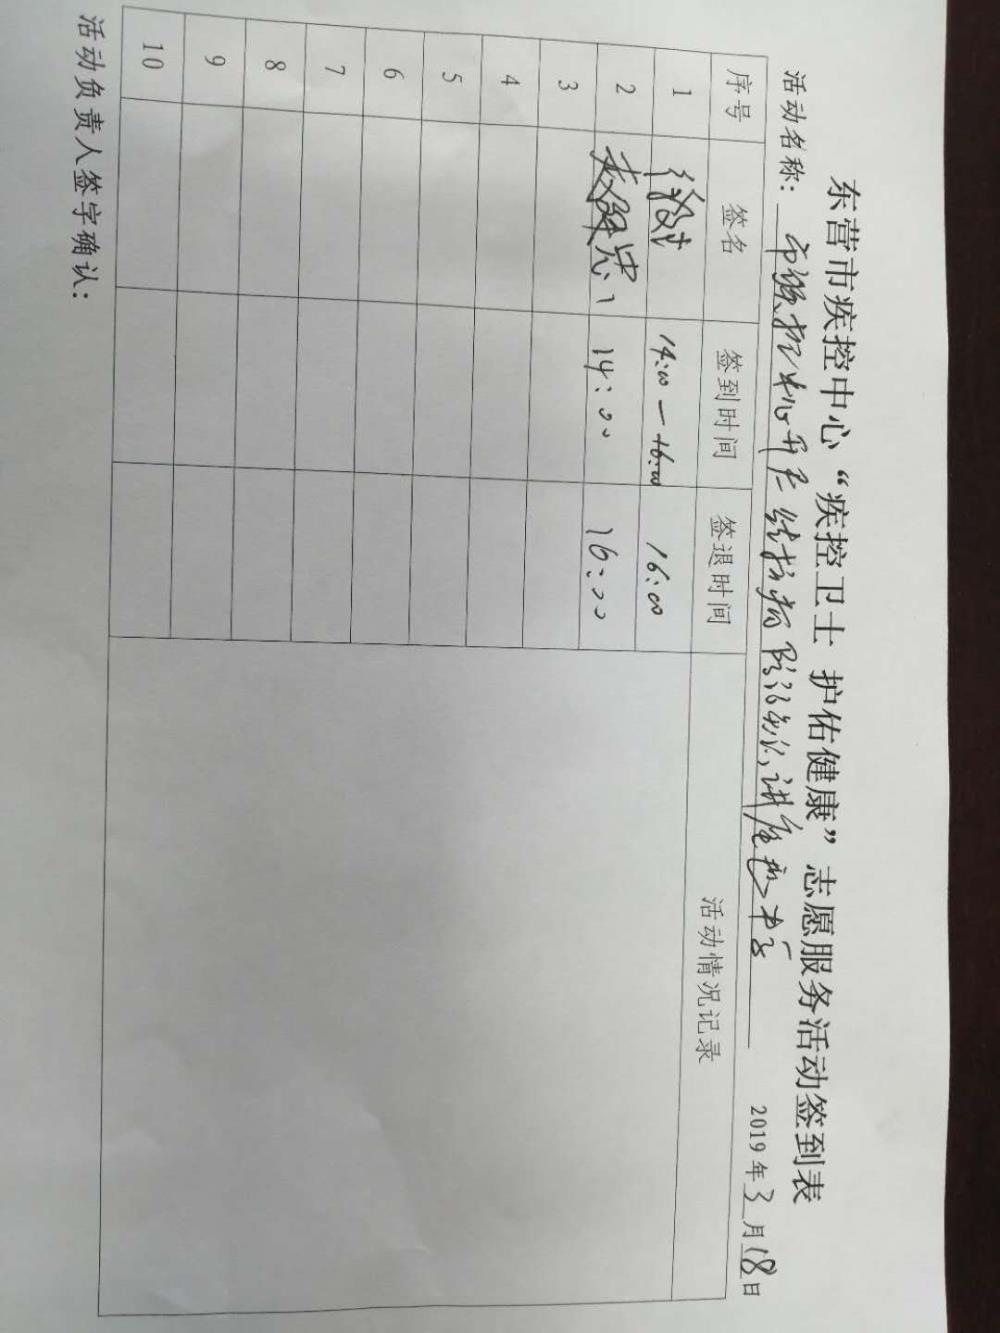 东营市疾控中心“疾控卫士 护佑健康”志愿服务活动签到表
活动名称：市疾控中心开展结核病防治知识讲座 2019年3月18日
序号 签名 签到时间 签退时间 活动情况记录
1 14:00—16:00 16:00
2 14:00 16:00
3
4
5
6
7
8
9
10
活动负责人签字确认：